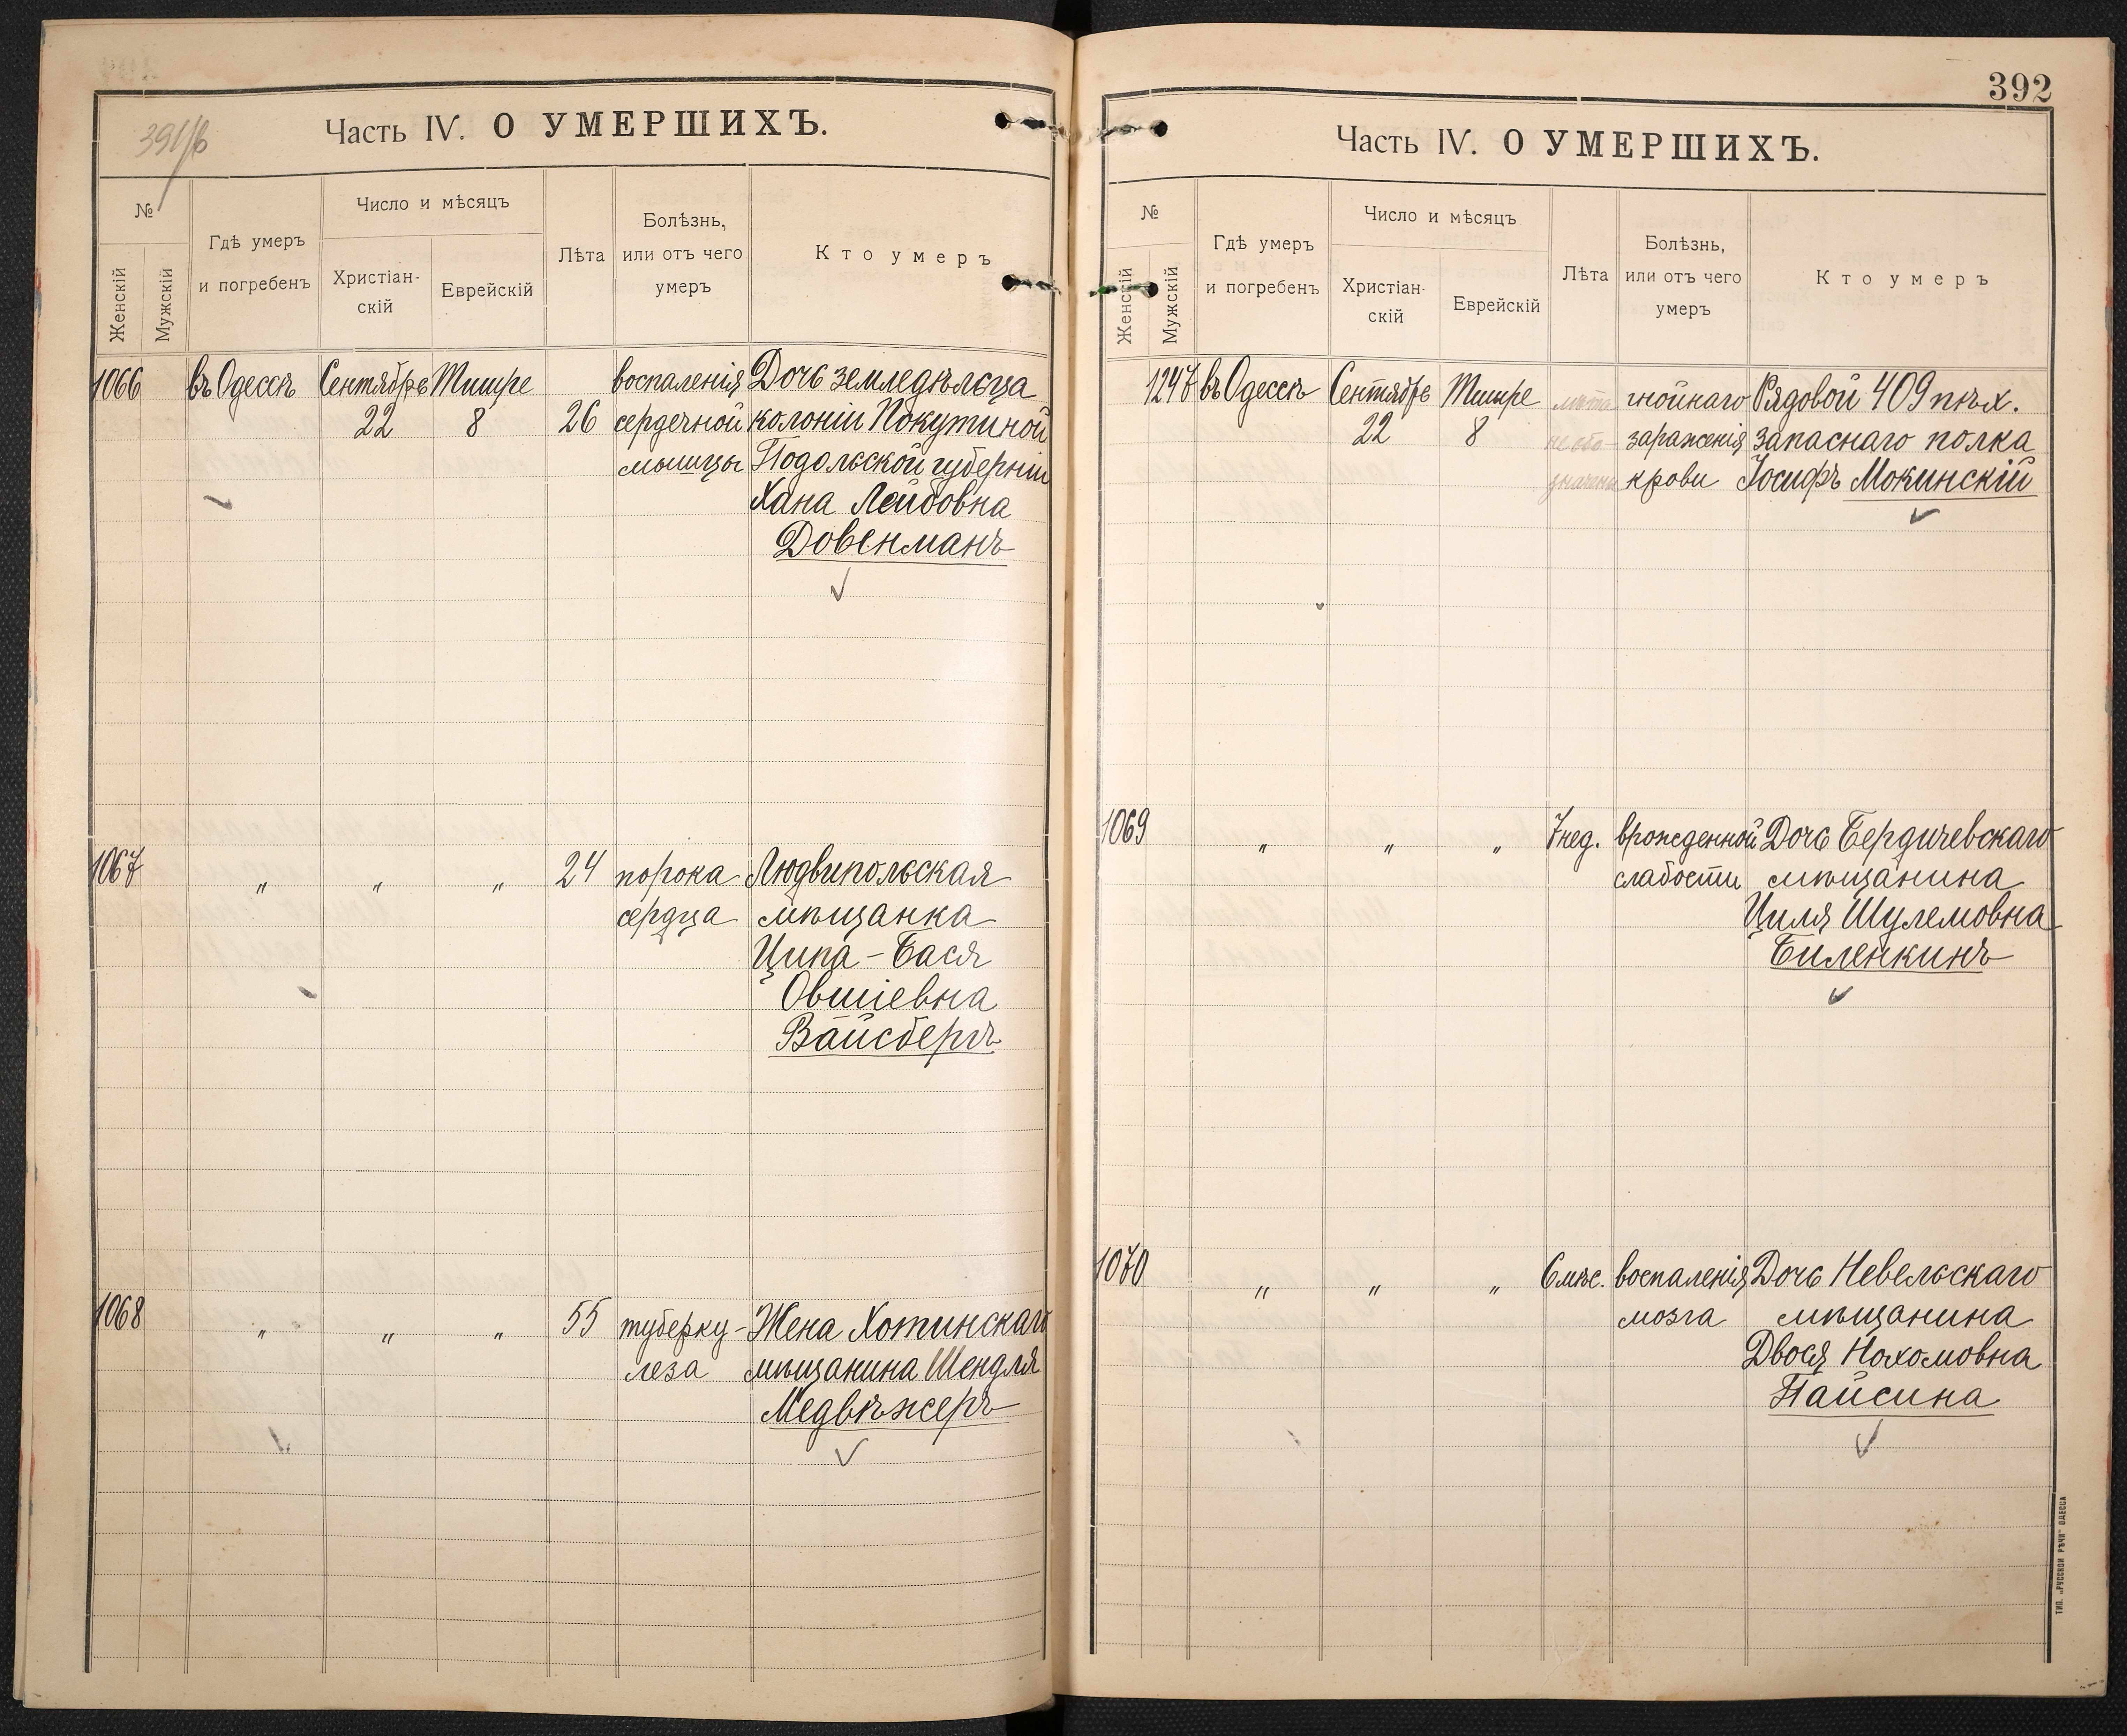 391/б
Часть IV. О УМЕРШИХЪ.
№
Женскій
Мужскій
Гдѣ умеръ
и погребенъ
Число и мѣсяцъ
Христіан-
скій
Еврейскій
Лѣта
Болѣзнь,
или отъ чего
умеръ
Кто умеръ
1066 въ Одессѣ Сентябрь Тишре воспаленія Дочь земледѣльца
22 8 26 сердечной колоніи Покутиной
мышцы Подольской губерніи
Хана Лейбовна
Довенманъ
1067 " " " 24 порока Людвипольская
сердца мѣщанка
Ципа-Бася
Овшіевна
Вайсбергъ
1068 " " " 55 туберку- Жена Хотинскаго
леза мѣщанина Шендля
Медвѣжеръ
392
Часть IV. О УМЕРШИХЪ.
№
Женскій
Мужскій
Гдѣ умеръ
и погребенъ
Число и мѣсяцъ
Христіан-
скій
Еврейскій
Лѣта
Болѣзнь,
или отъ чего
умеръ
Кто умеръ
1247 въ Одессѣ Сентябрь Тишре лѣта гнойнаго Рядовой 409 пѣх.
22 8 не обо- зараженія запаснаго полка
значены крови Іосифъ Мокинскій
1069 " " " 7 нед. врожденной Дочь Бердичевскаго
слабости мѣщанина
Циля Шулемовна
Биленкинъ
1070 " " " 6 мѣс. воспаленія Дочь Невельскаго
мозга мѣщанина
Двося Нохомовна
Пайсина
ТИП. „РУССКОЙ РѢЧИ" ОДЕССА